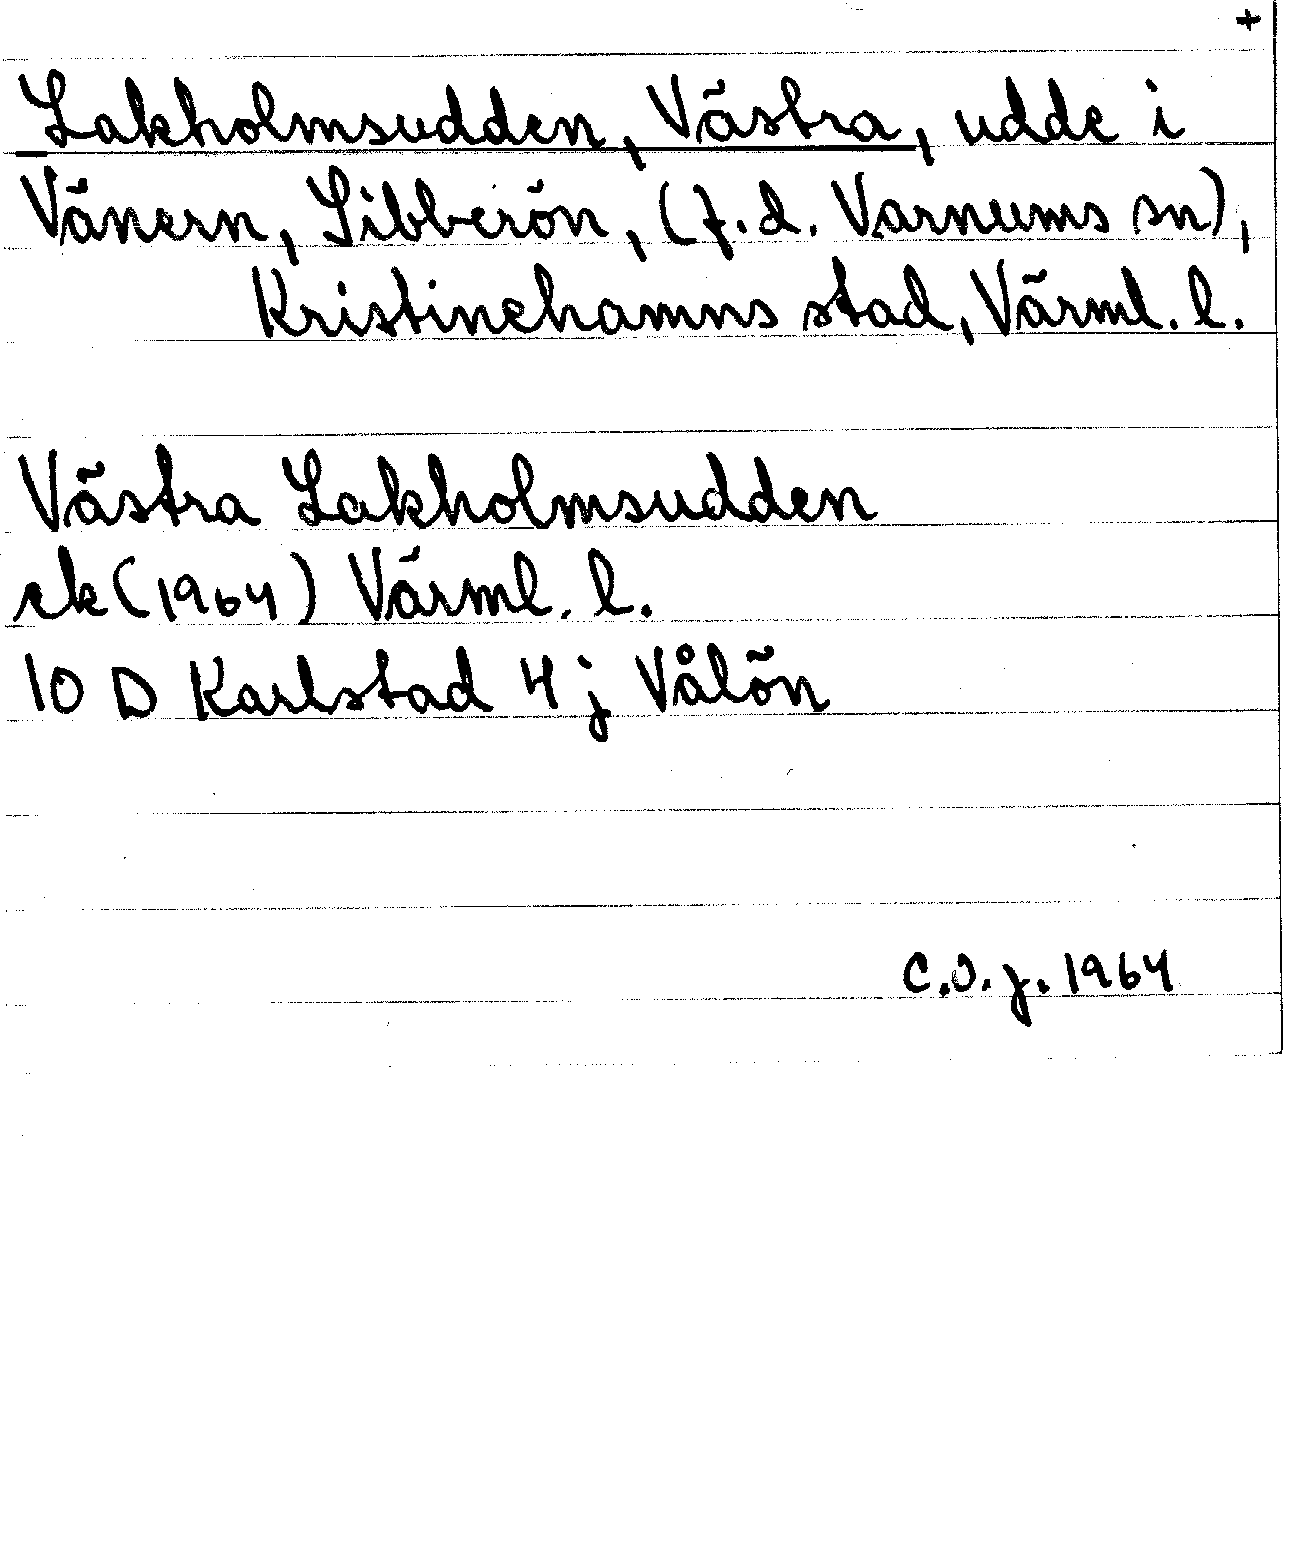 +
Lakholmsudden, Västra, udde i
Vänern, Sibberön, (f.d. Varnums sn),
Kristinehamns stad, Värml. l.
Västra Lakholmsudden
ek (1964) Värml. l.
10 D Karlstad 4 j Vålön
C.O.J. 1964